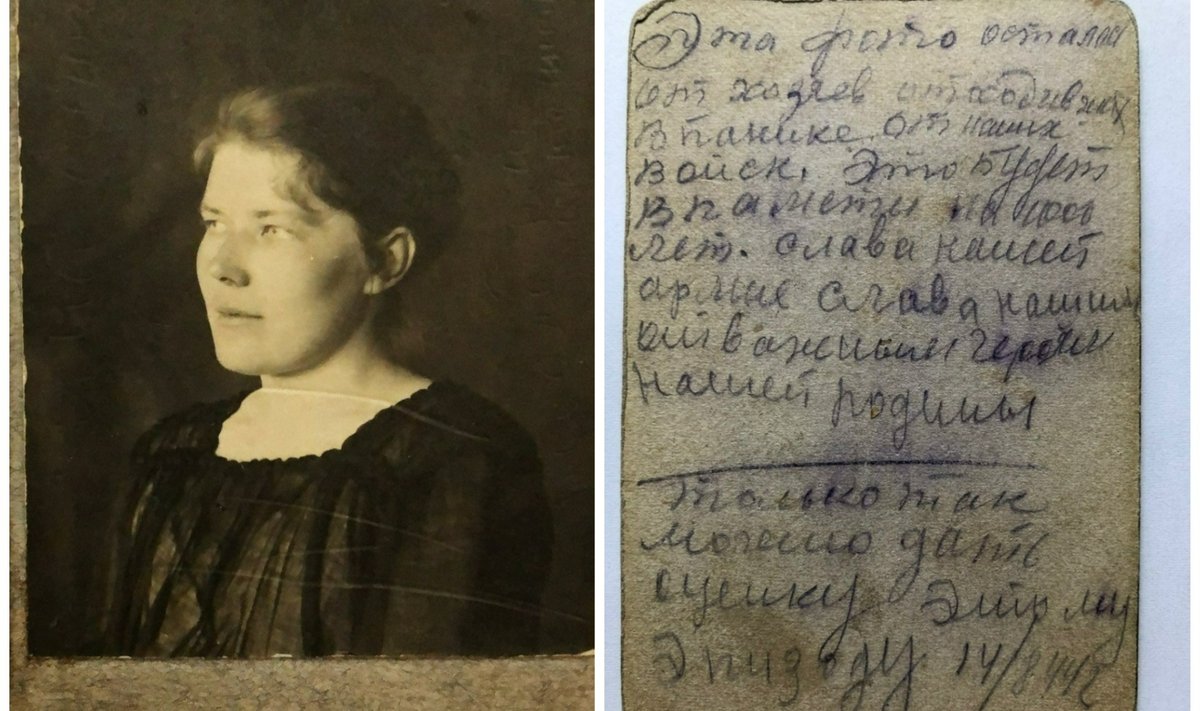 Эта фото осталас
от хозяев отходивших
в панике от наших
войск. Это будет
в памяти на 1000
лет. слава нашей
армие слава нашим
отважным героям
нашей родины
только так
можно дать
оценку этому
эпизоду 14/8 44г